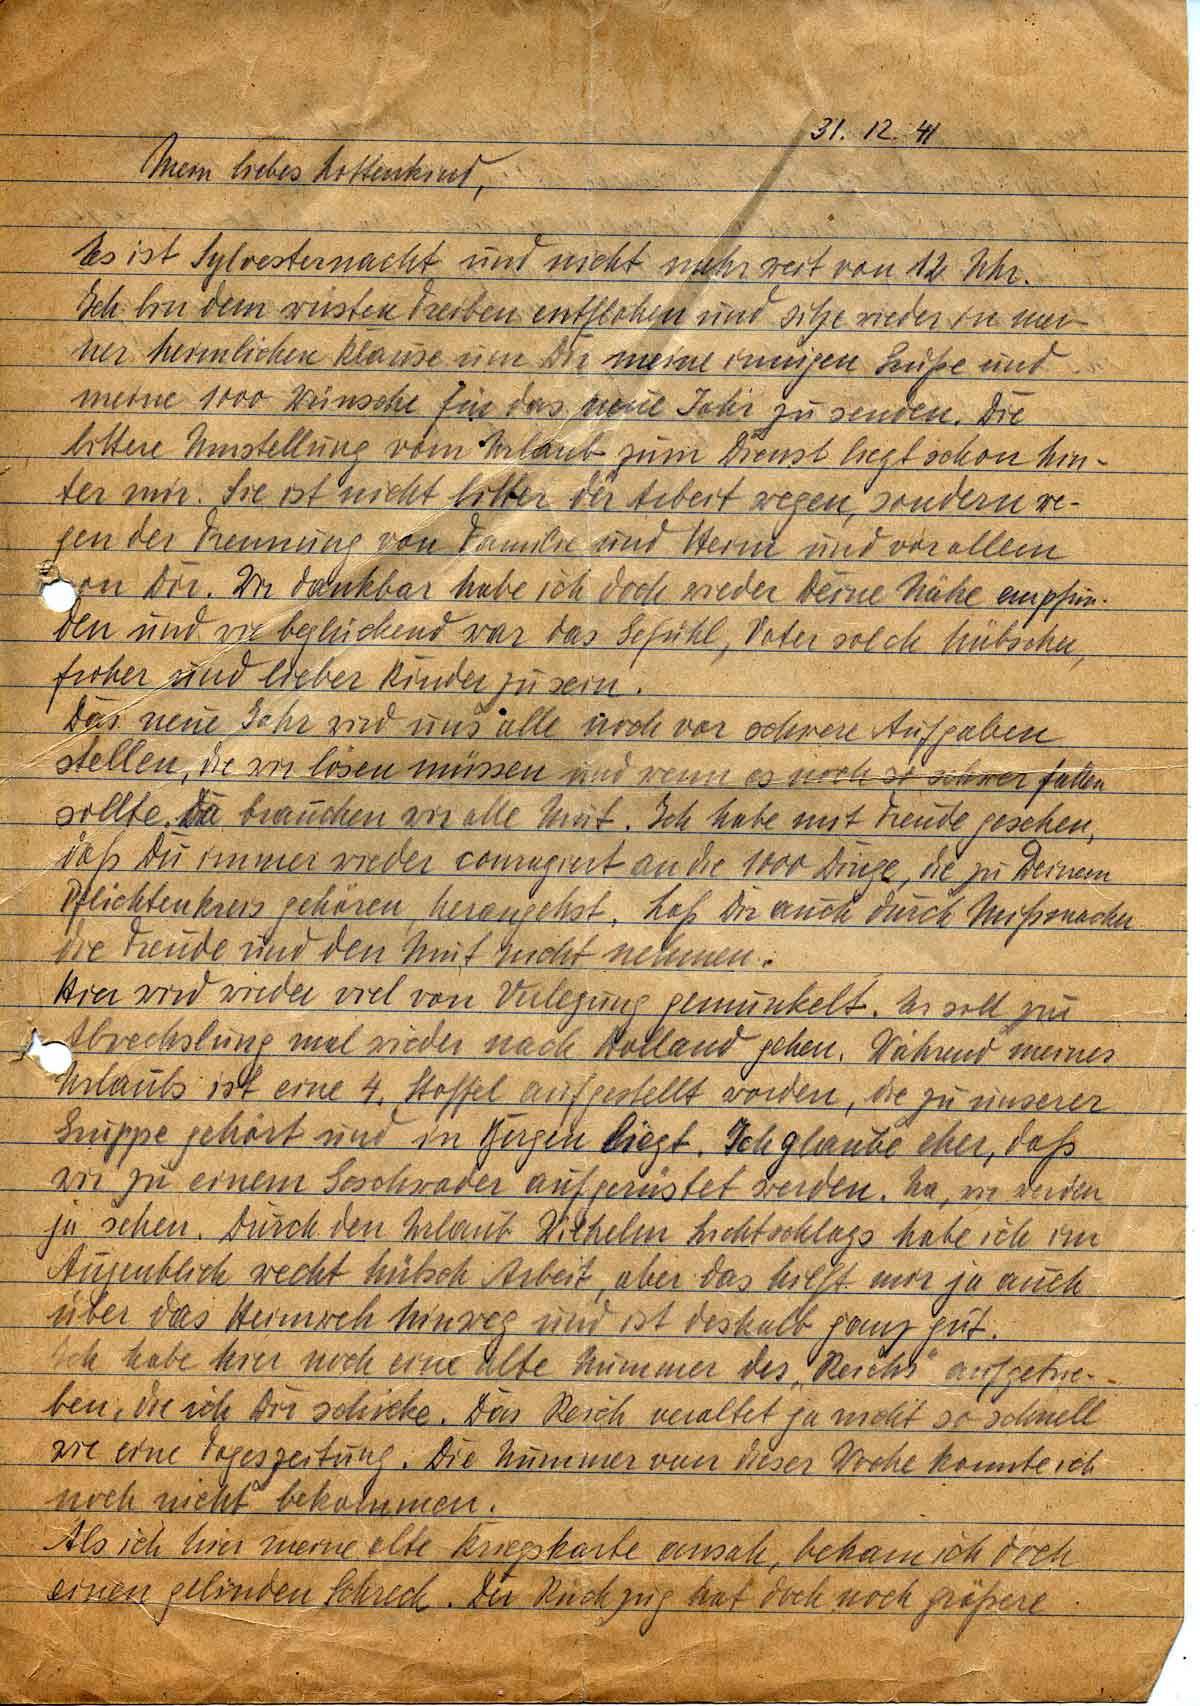 31. 12. 41
Mein liebes Lottenkind,
Es ist Sylvesternacht und nicht mehr weit von 12 Uhr.
Ich bin dem wüsten Treiben entflohen und sitze wieder in mei-
ner heimlichen Klause um Dir meine innigen Grüße und
meine 1000 Wünsche für das neue Jahr zu senden. Die
bittere Umstellung vom Urlaub zum Dienst liegt schon hin-
ter mir. Sie ist nicht bitter der Arbeit wegen, sondern we-
gen der Trennung von Familie und Heim und vor allem
von Dir. Wie dankbar habe ich doch wieder Deine Nähe empfun-
den und wie beglückend war das Gefühl, Vater solch hübscher,
froher und lieber Kinder zu sein.
Das neue Jahr wird uns alle noch vor schwere Aufgaben
stellen, die wir lösen müssen und wenn es noch so schwer fallen
sollte. Da brauchen wir alle Mut. Ich habe mit Freude gesehen,
daß Du immer wieder couragiert an die 1000 Dinge, die zu Deinem
Pflichtenkreis gehören, herangehst. Laß Dir auch durch Miesmacher
die Freude und den Mut nicht nehmen.
Hier wird wieder viel von Verlegung gemunkelt. Es soll zur
Abwechslung mal wieder nach Holland gehen. Während meines
Urlaubs ist eine 4. Staffel aufgestellt worden, die zu unserer
Gruppe gehört und in Bergen liegt. Ich glaube eher, daß
wir zu einem Geschwader aufgerüstet werden. Na, wir werden
ja sehen. Durch den Urlaub Wilhelm Lichtschlags habe ich im
Augenblick recht hübsch Arbeit, aber das hilft mir ja auch
über das Heimweh hinweg und ist deshalb ganz gut.
Ich habe hier noch eine alte Nummer des „Reichs" aufgetrie-
ben, die ich Dir schicke. Das Reich veraltet ja nicht so schnell
wie eine Tageszeitung. Die Nummer von dieser Woche konnte ich
noch nicht bekommen.
Als ich hier meine alte Kriegskarte ansah, bekam ich doch
einen gelinden Schreck. Der Rückzug hat doch noch größere